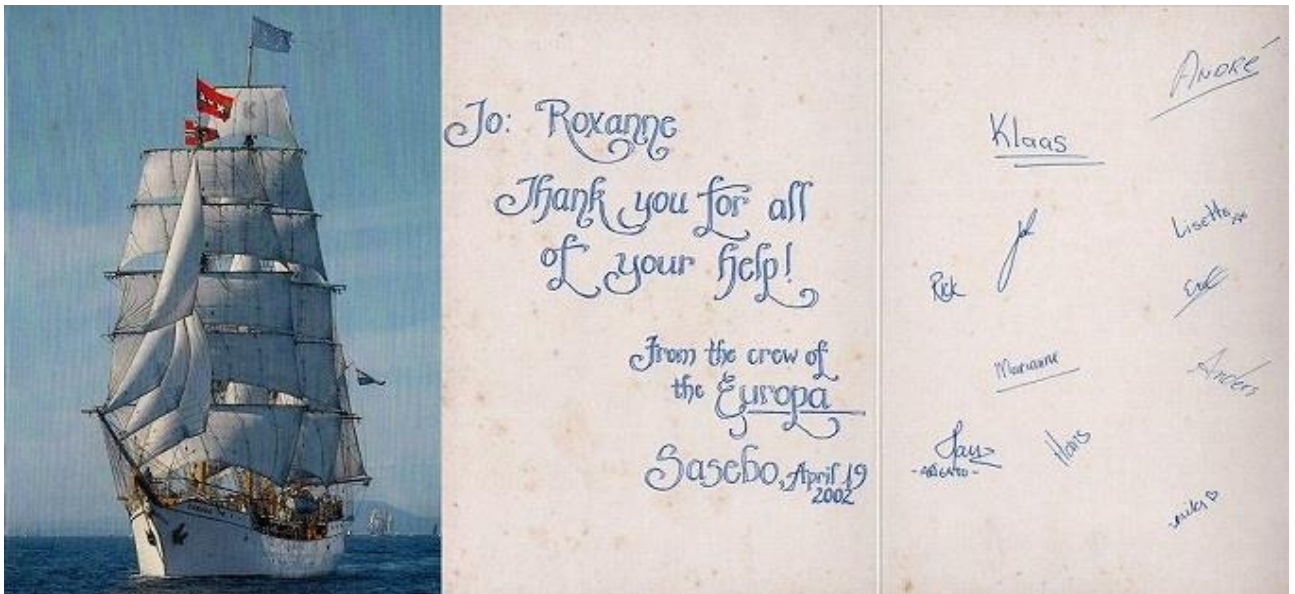 To: Roxanne
Thank you for all
of your help!
From the crew of
the Europa
Sasebo, April 19
2002
ANDRÉ
Klaas
Lisette
Rick
Marianne
Anders
Hans
-ARIGATO-